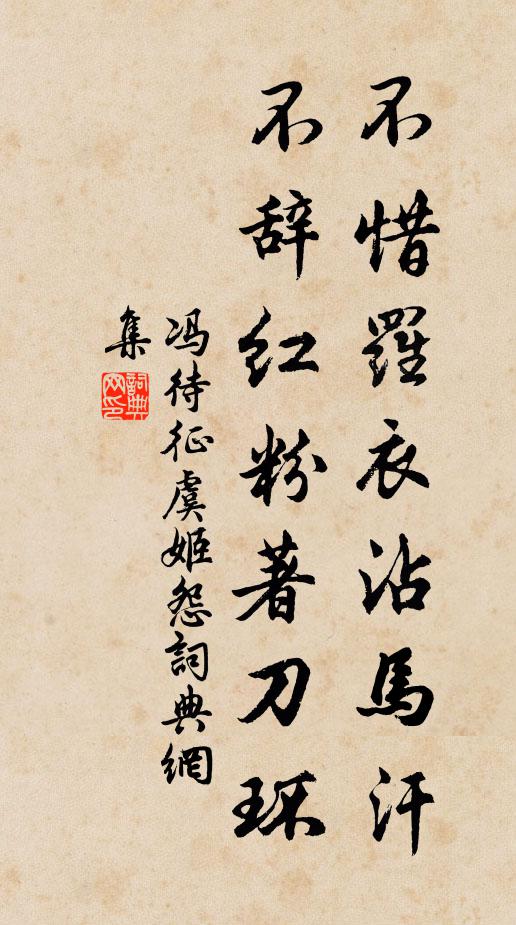 不惜羅衣沾馬汗
不辞红粉著刀环
冯待征虞姬怨詞典網
集
詞典网印